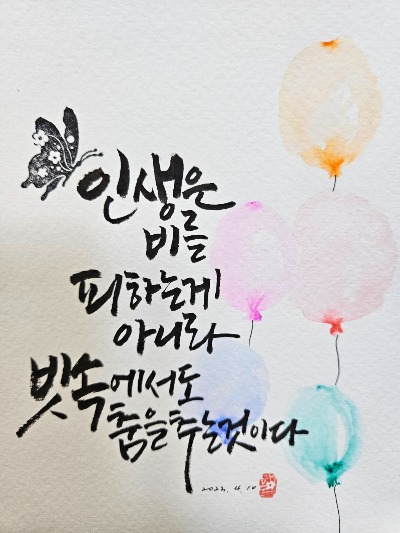 인생은
비를
피하는게
아니라
빗속에서도
춤을추는것이다
2022. 4. 10